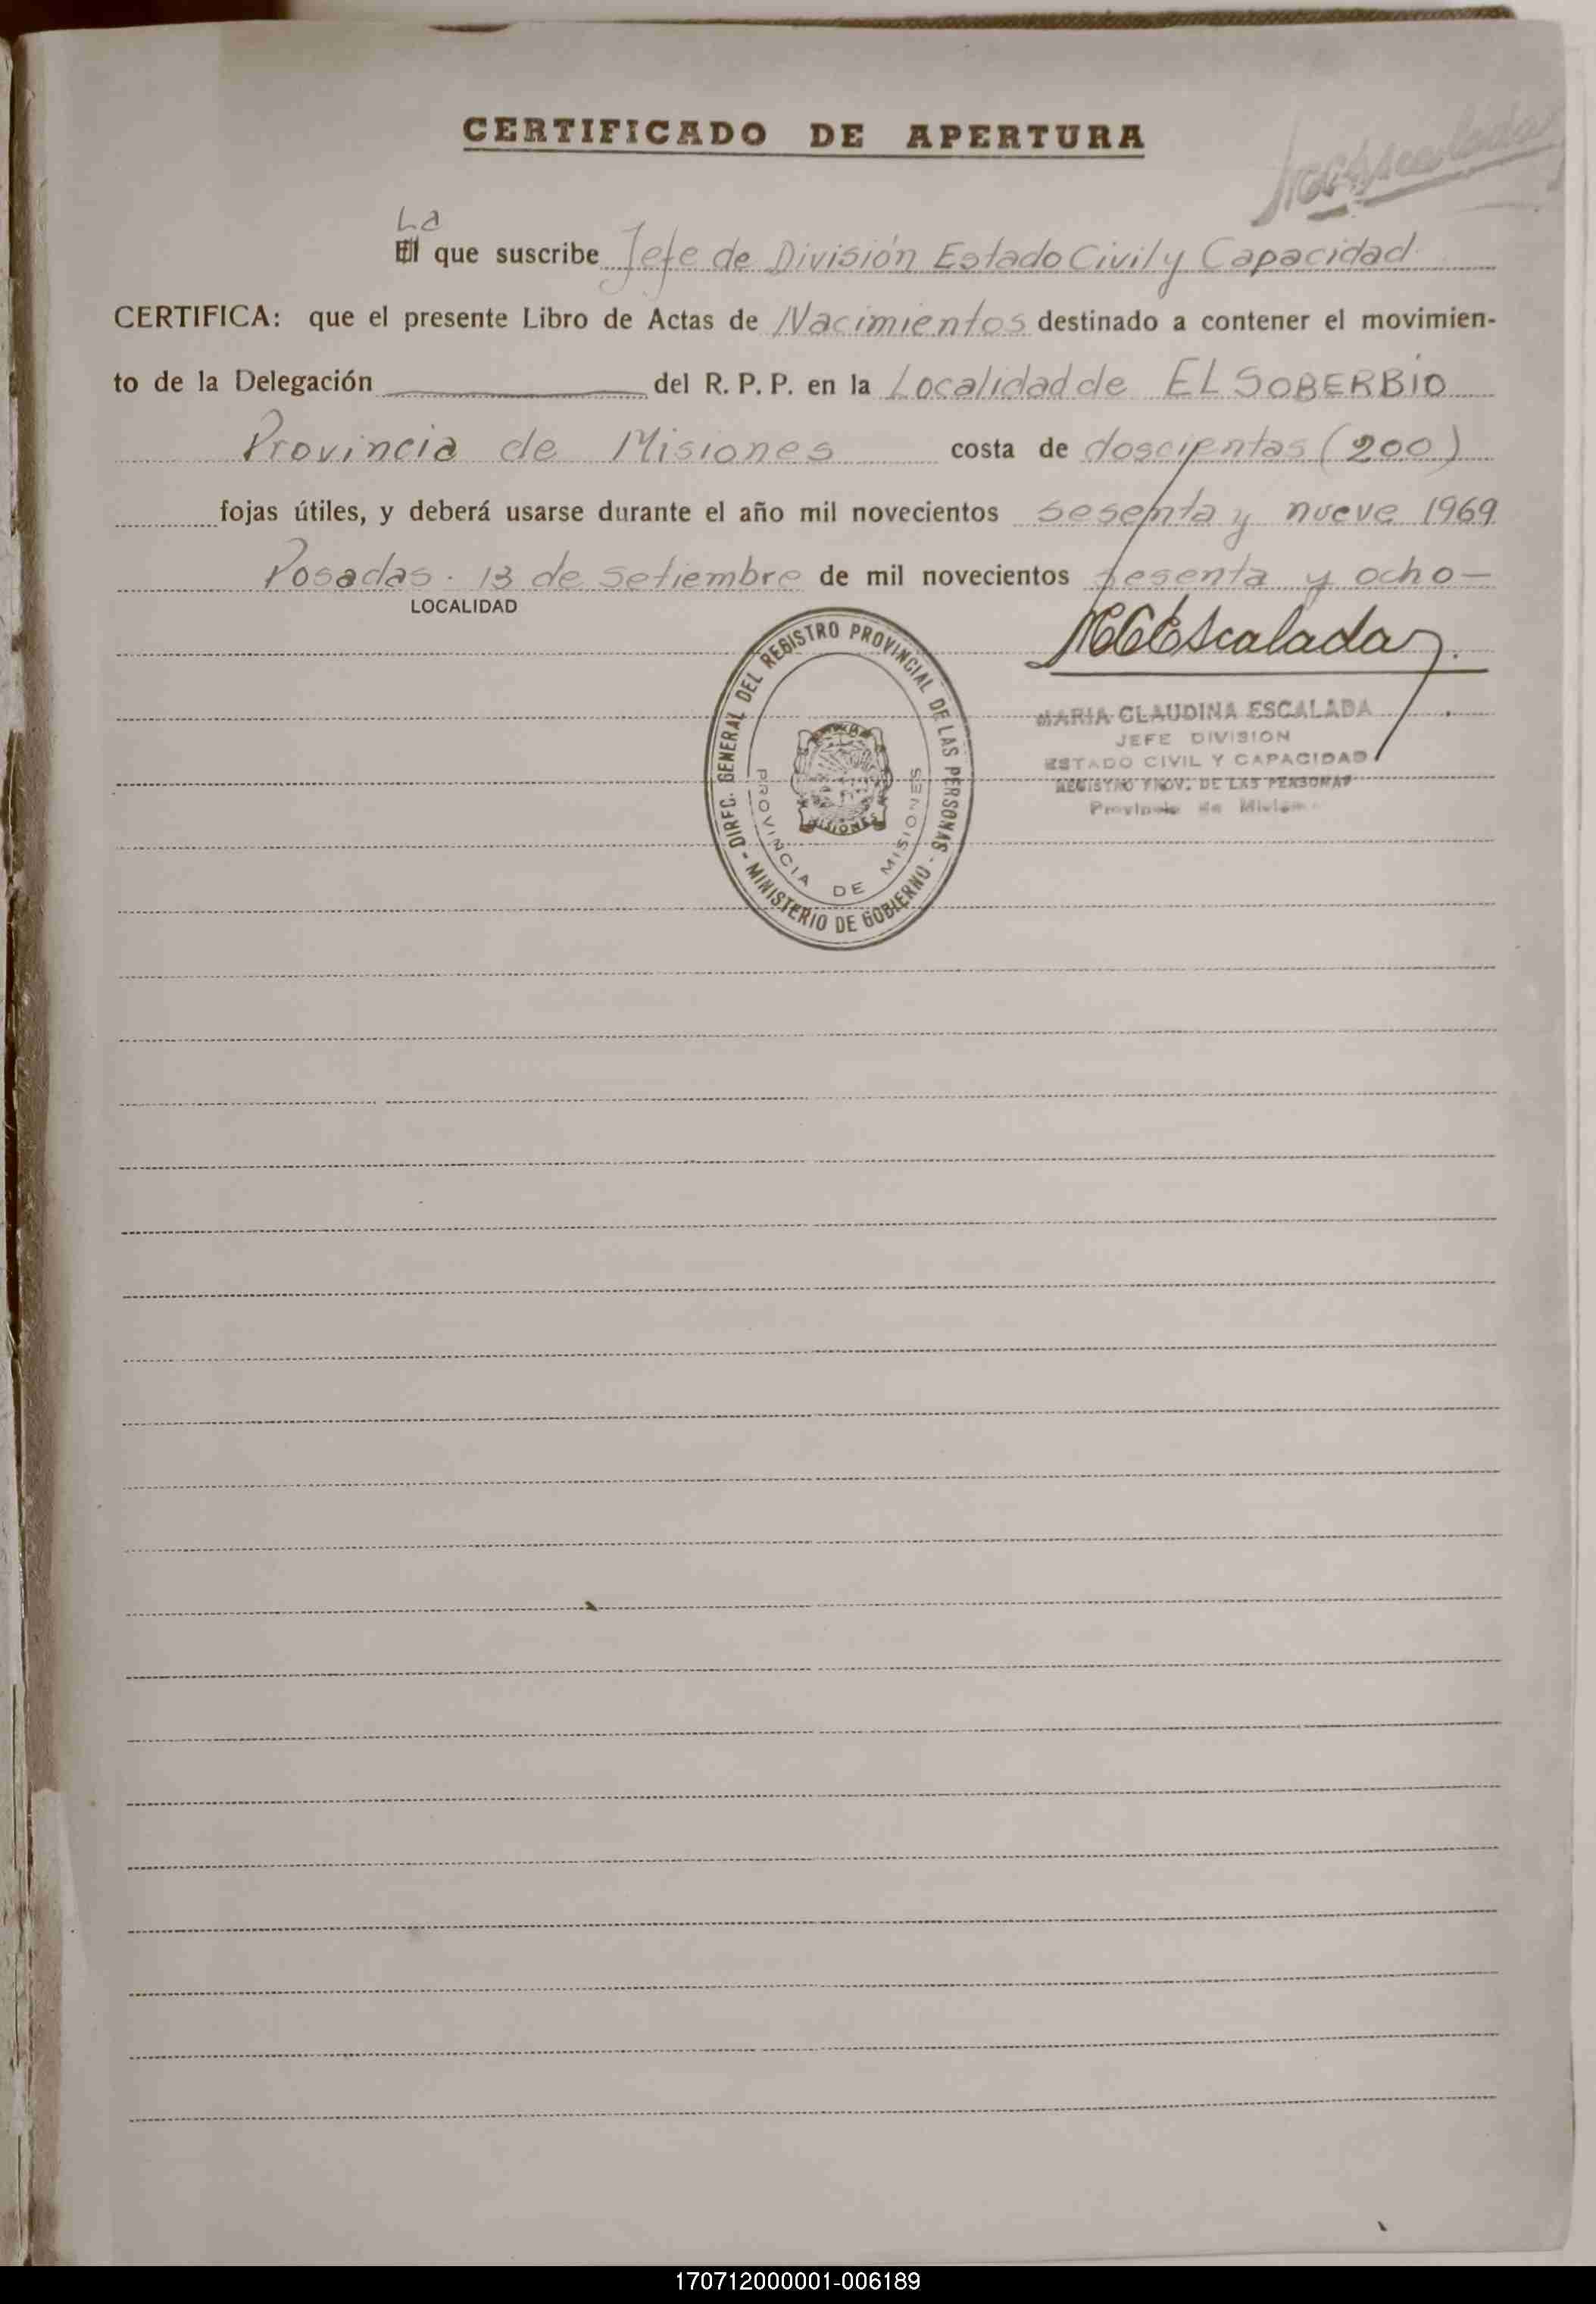 CERTIFICADO DE APERTURA
La
El que suscribe Jefe de División Estado Civil y Capacidad
CERTIFICA: que el presente Libro de Actas de Nacimientos destinado a contener el movimien-
to de la Delegación del R. P. P. en la Localidad de EL SOBERBIO
Provincia de Misiones costa de doscientas (200)
fojas útiles, y deberá usarse durante el año mil novecientos sesenta y nueve 1969
Posadas. 13 de setiembre de mil novecientos sesenta y ocho—
LOCALIDAD
Escalada
MARIA CLAUDINA ESCALADA
JEFE DIVISION
ESTADO CIVIL Y CAPACIDAD
REGISTRO PROV. DE LAS PERSONAS
Provincia de Misiones
DIREC. GENERAL DEL REGISTRO PROVINCIAL DE LAS PERSONAS - MINISTERIO DE GOBIERNO -
PROVINCIA DE MISIONES
MISIONES
170712000001-006189